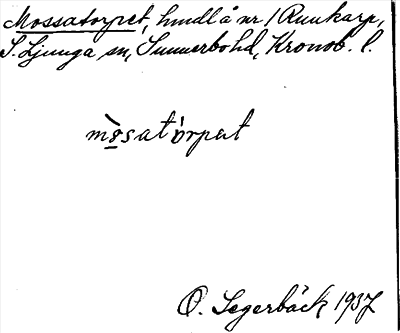 Mossatorpet, hmdl å nr 1 Runkarp,
S. Ljunga sn, Sunnerbo hd, Kronob. l.
mòsatòrpet
O. Segerbäck 1937